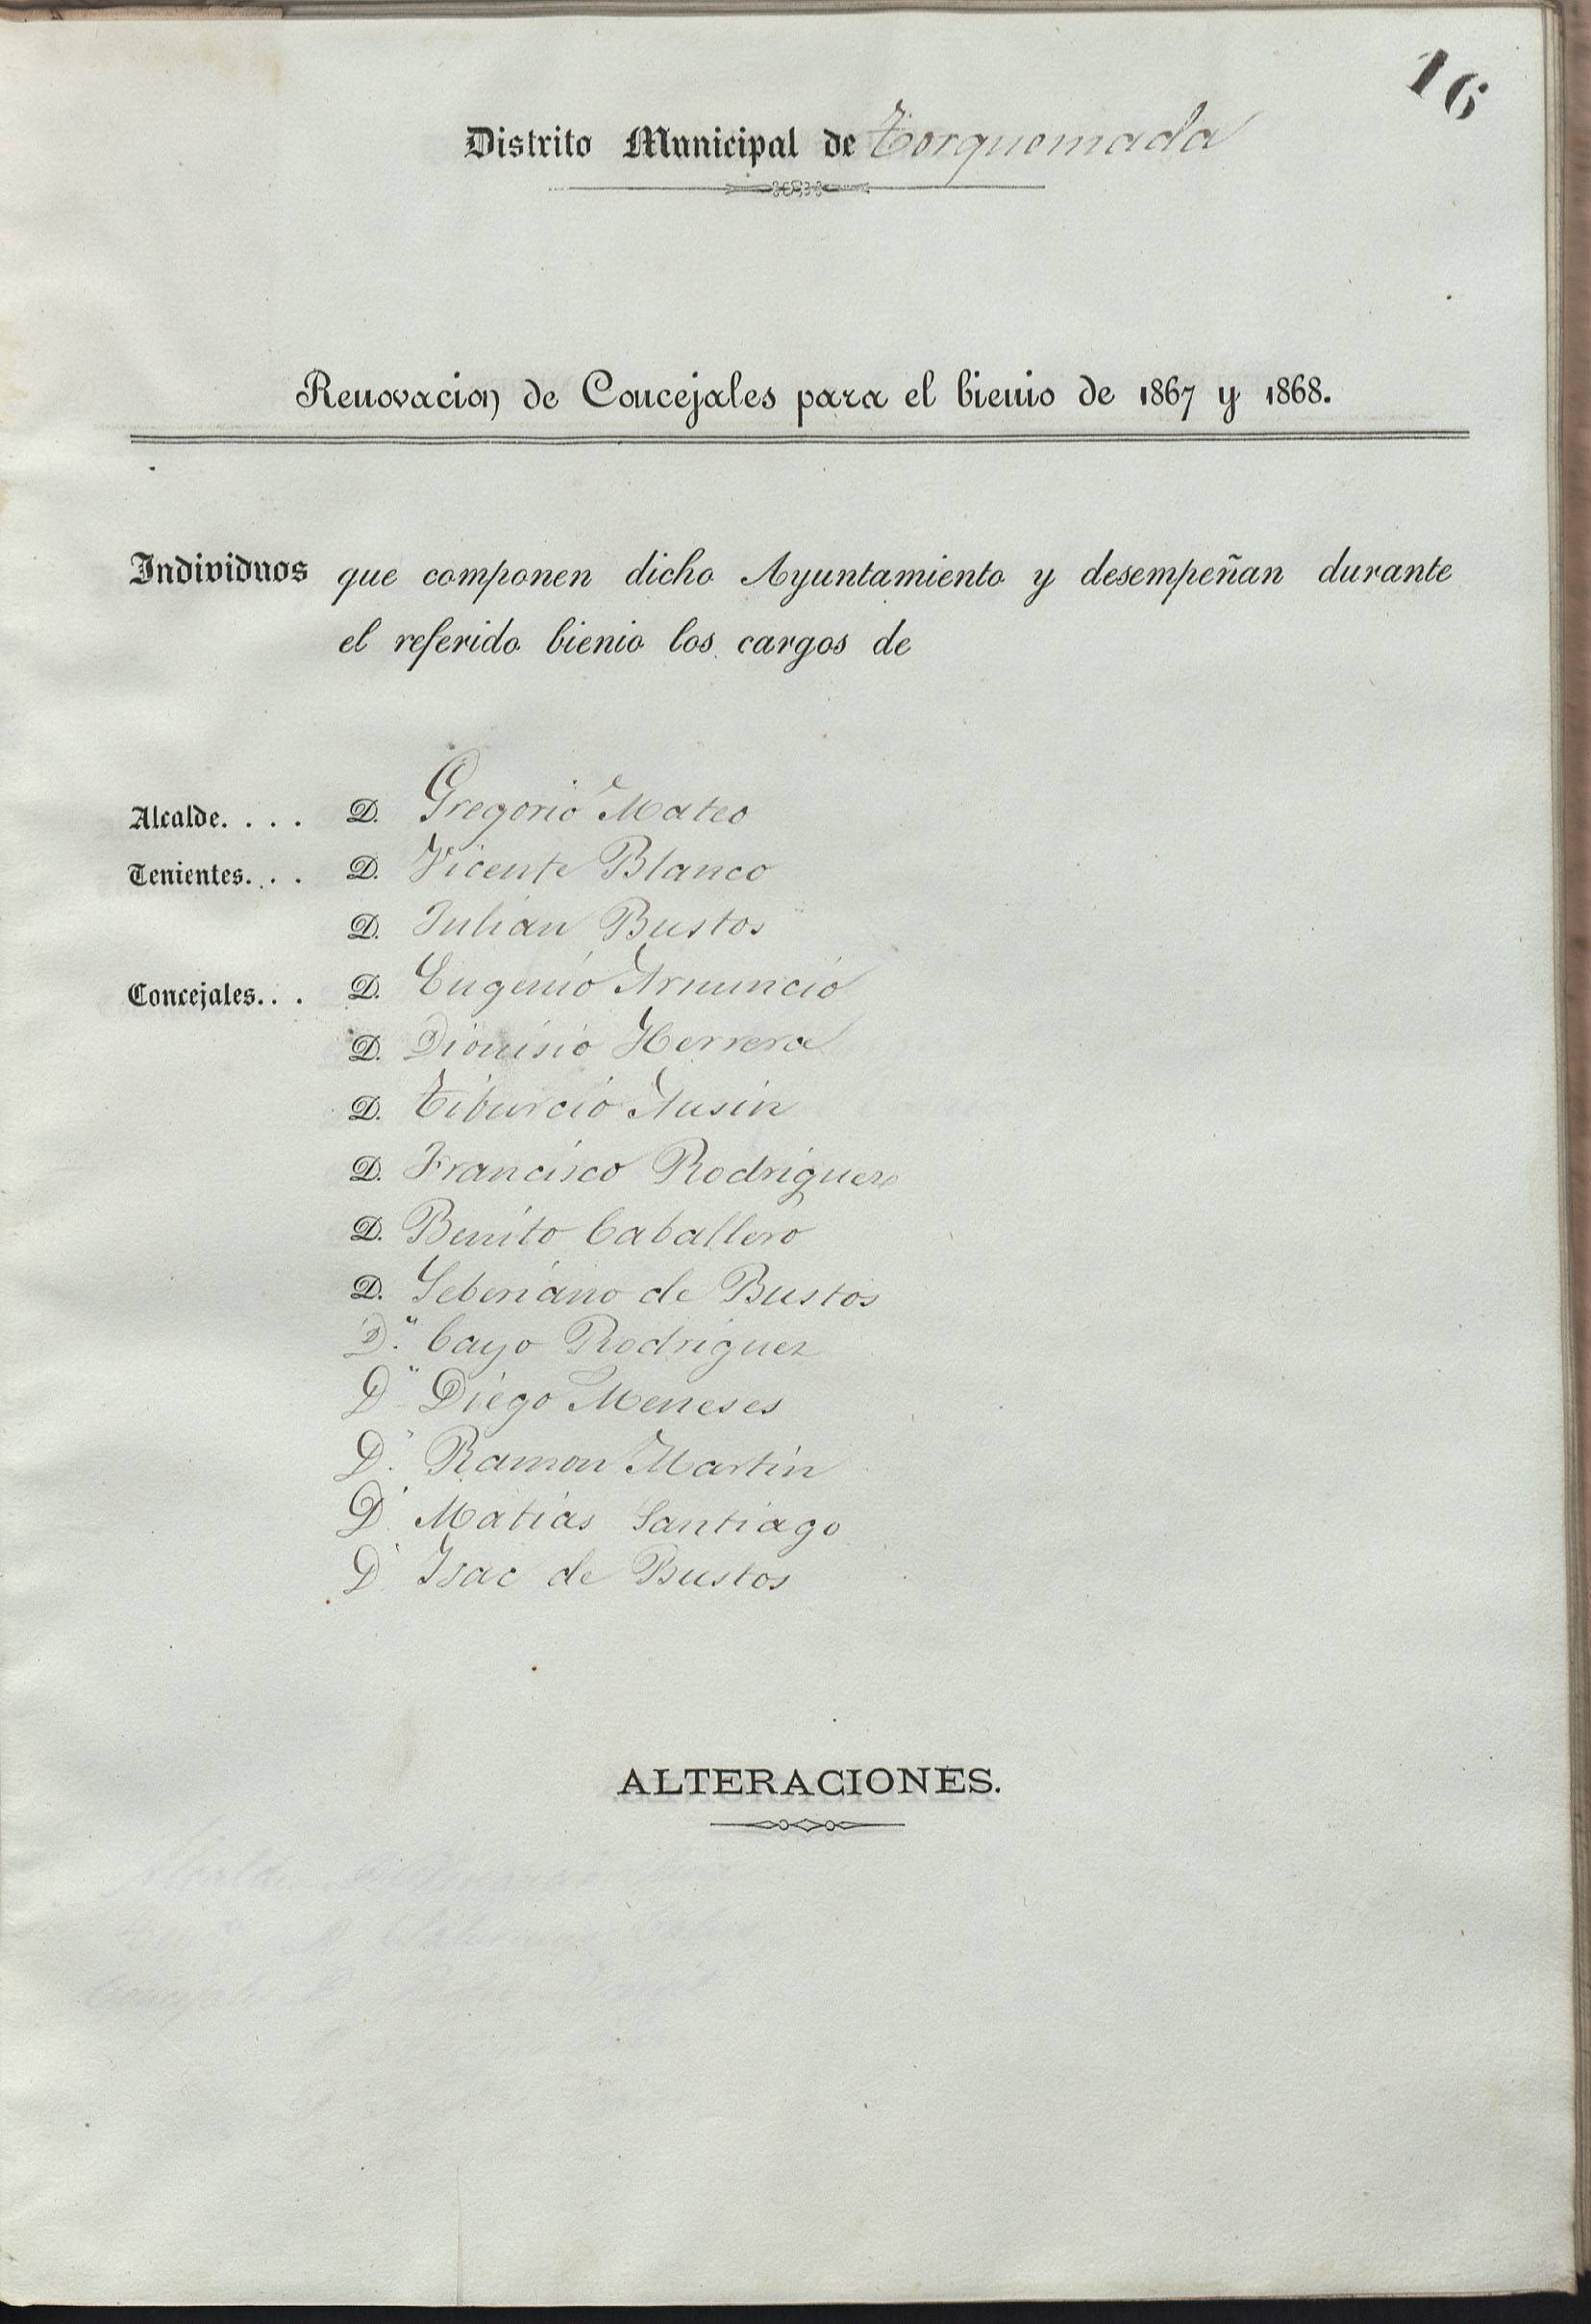 16
Distrito Municipal de Torquemada
Renovacion de Concejales para el bienio de 1867 y 1868.
Individuos que componen dicho Ayuntamiento y desempeñan durante
el referido bienio los cargos de
Alcalde. . . . D. Gregorio Mateo
Tenientes. . . D. Vicente Blanco
D. Julian Bustos
Concejales. . . D. Eugenio Arnuncio
D. Dionisio Herrera
D. Tiburcio Ausin
D. Francisco Rodriguez
D. Benito Caballero
D. Seberiano de Bustos
D.n Cayo Rodriguez
D.n Diego Meneses
D.n Ramon Martin
D. Matias Santiago
D. Isac de Bustos
ALTERACIONES.